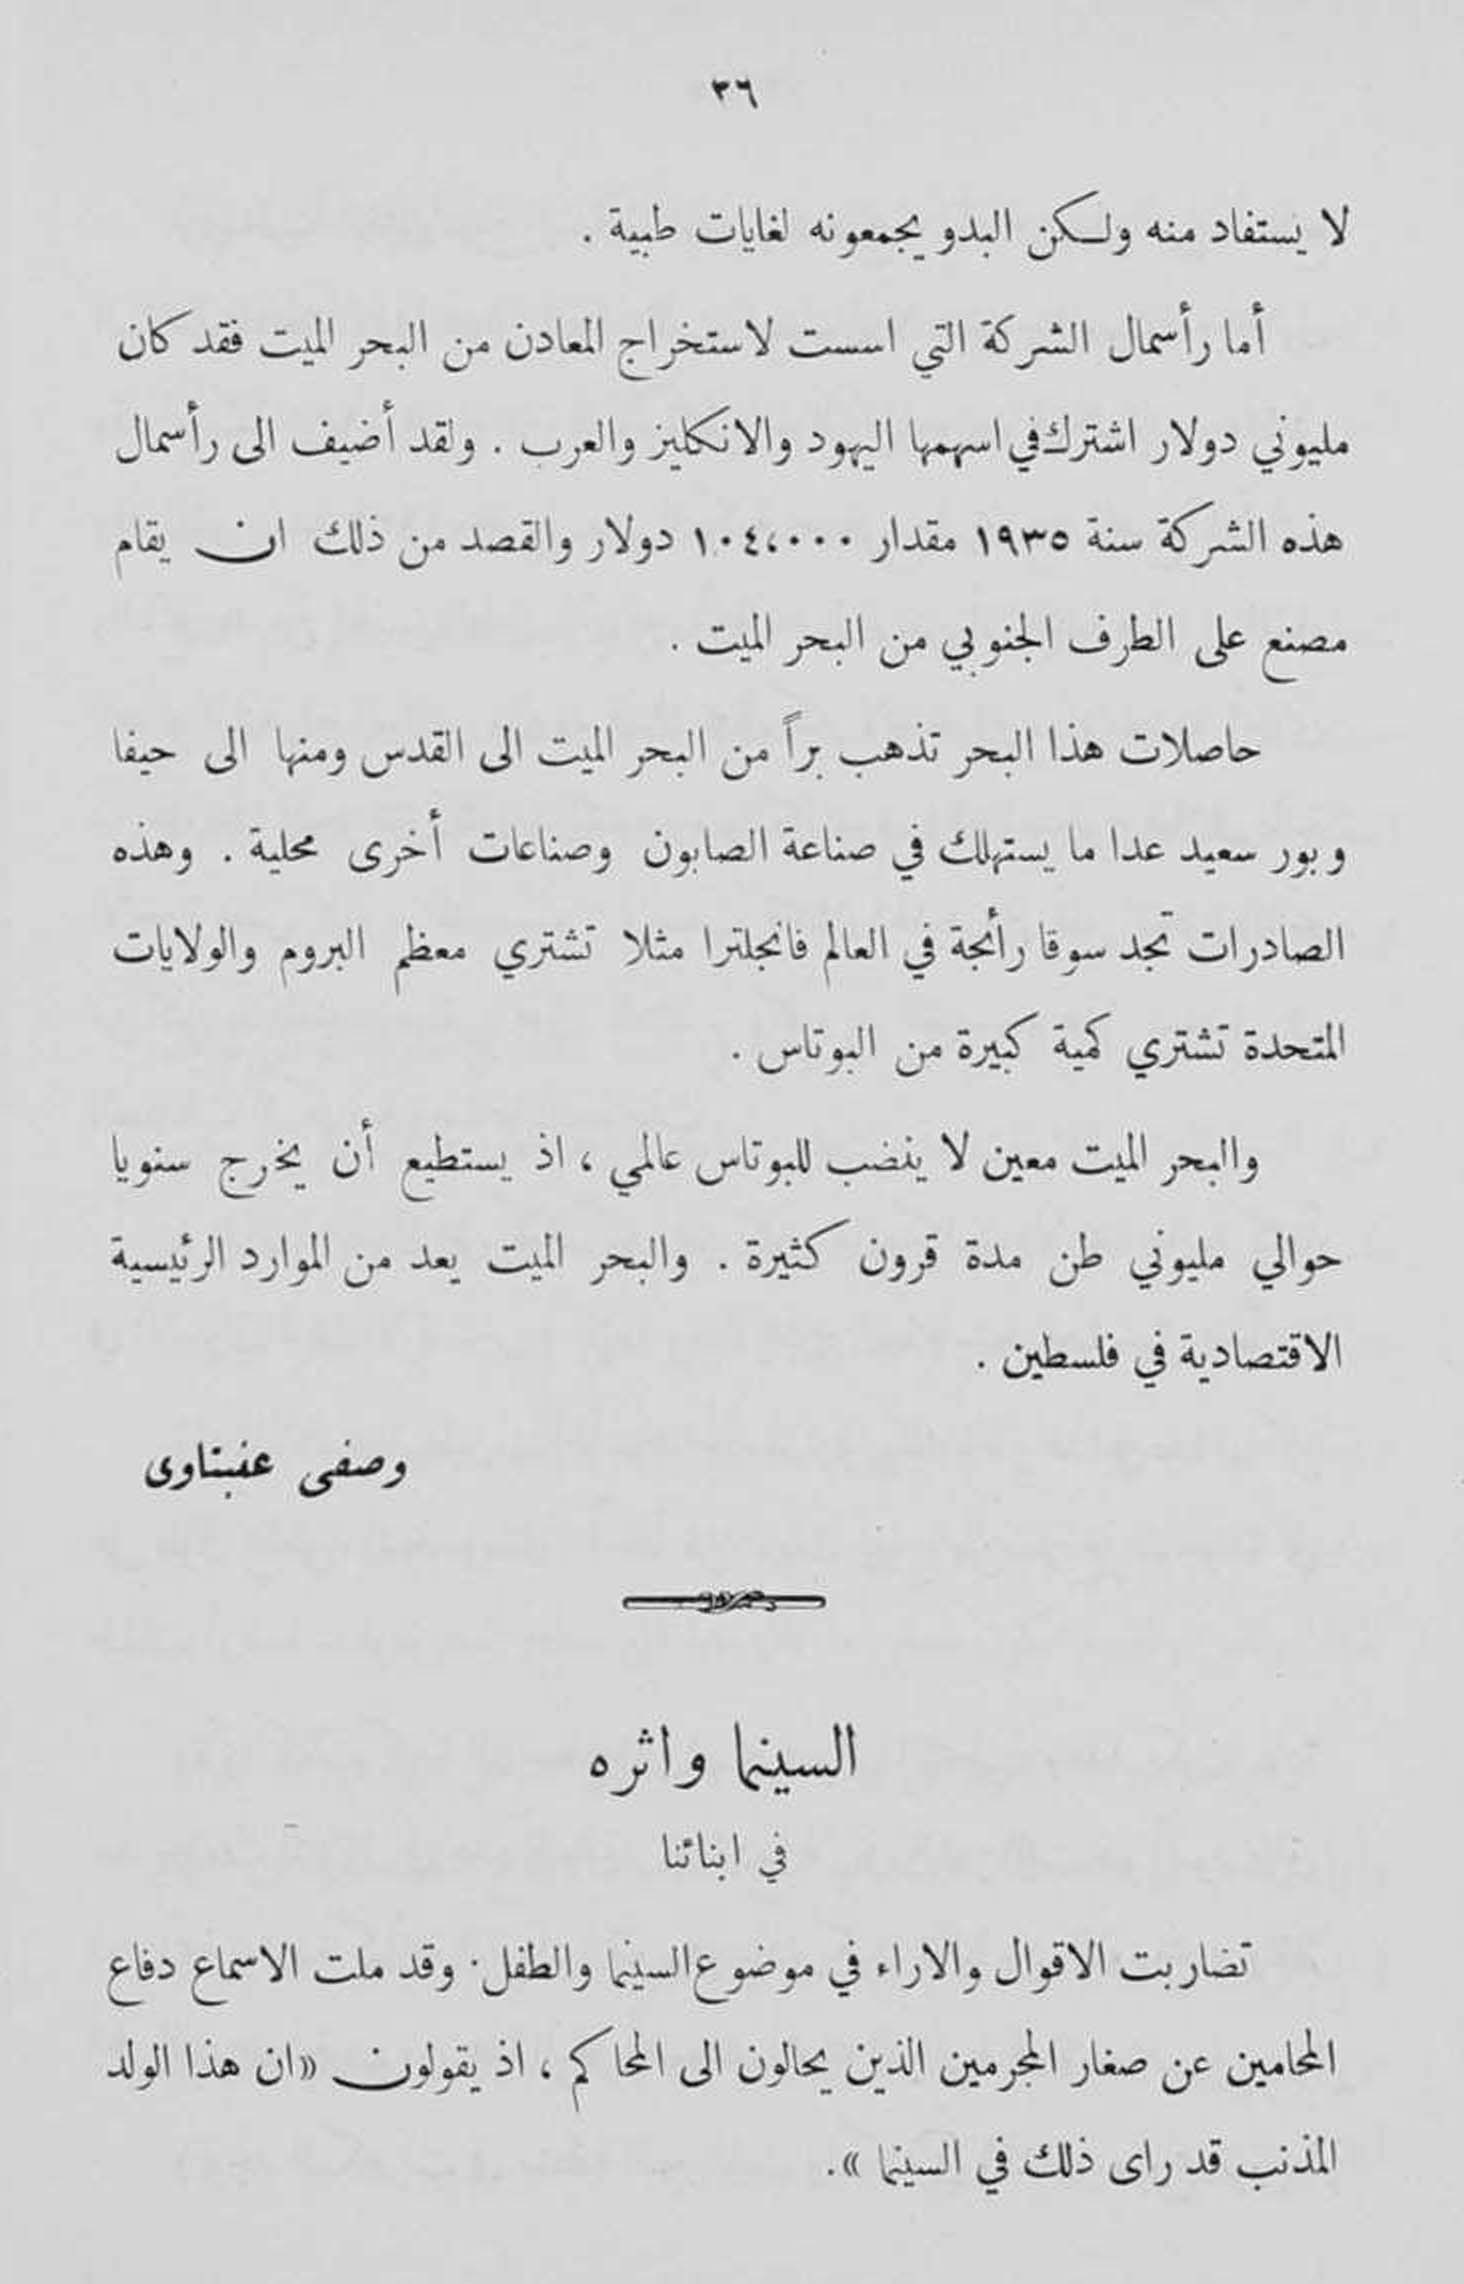 ٣٦
لا يستفاد منه ولكن البدو يجمعونه لغايات طبية .
أما رأسمال الشركة التي اسست لاستخراج المعادن من البحر الميت فقد كان
مليوني دولار اشترك في اسهمها اليهود والانكليز والعرب . ولقد أضيف الى رأسمال
هذه الشركة سنة ١٩٣٥ مقدار ١٠٤،٠٠٠ دولار والقصد من ذلك ان يقام
مصنع على الطرف الجنوبي من البحر الميت .
حاصلات هذا البحر تذهب براً من البحر الميت الى القدس ومنها الى حيفا
وبور سعيد عدا ما يستهلك في صناعة الصابون وصناعات أخرى محلية . وهذه
الصادرات تجد سوقا رأئجة في العالم فانجلترا مثلا تشتري معظم البروم والولايات
المتحدة تشتري كمية كبيرة من البوتاس .
والبحر الميت معين لا ينضب للبوتاس عالمي ، اذ يستطيع أن يخرج سنويا
حوالي مليوني طن مدة قرون كثيرة . والبحر الميت يعد من الموارد الرئيسية
الاقتصادية في فلسطين .
وصفى عنبتاوى
السينما واثره
في ابنائنا
تضاربت الاقوال والاراء في موضوع السينما والطفل . وقد ملت الاسماع دفاع
المحامين عن صغار المجرمين الذين يحالون الى المحاكم ، اذ يقولون «ان هذا الولد
المذنب قد راى ذلك في السينما » .